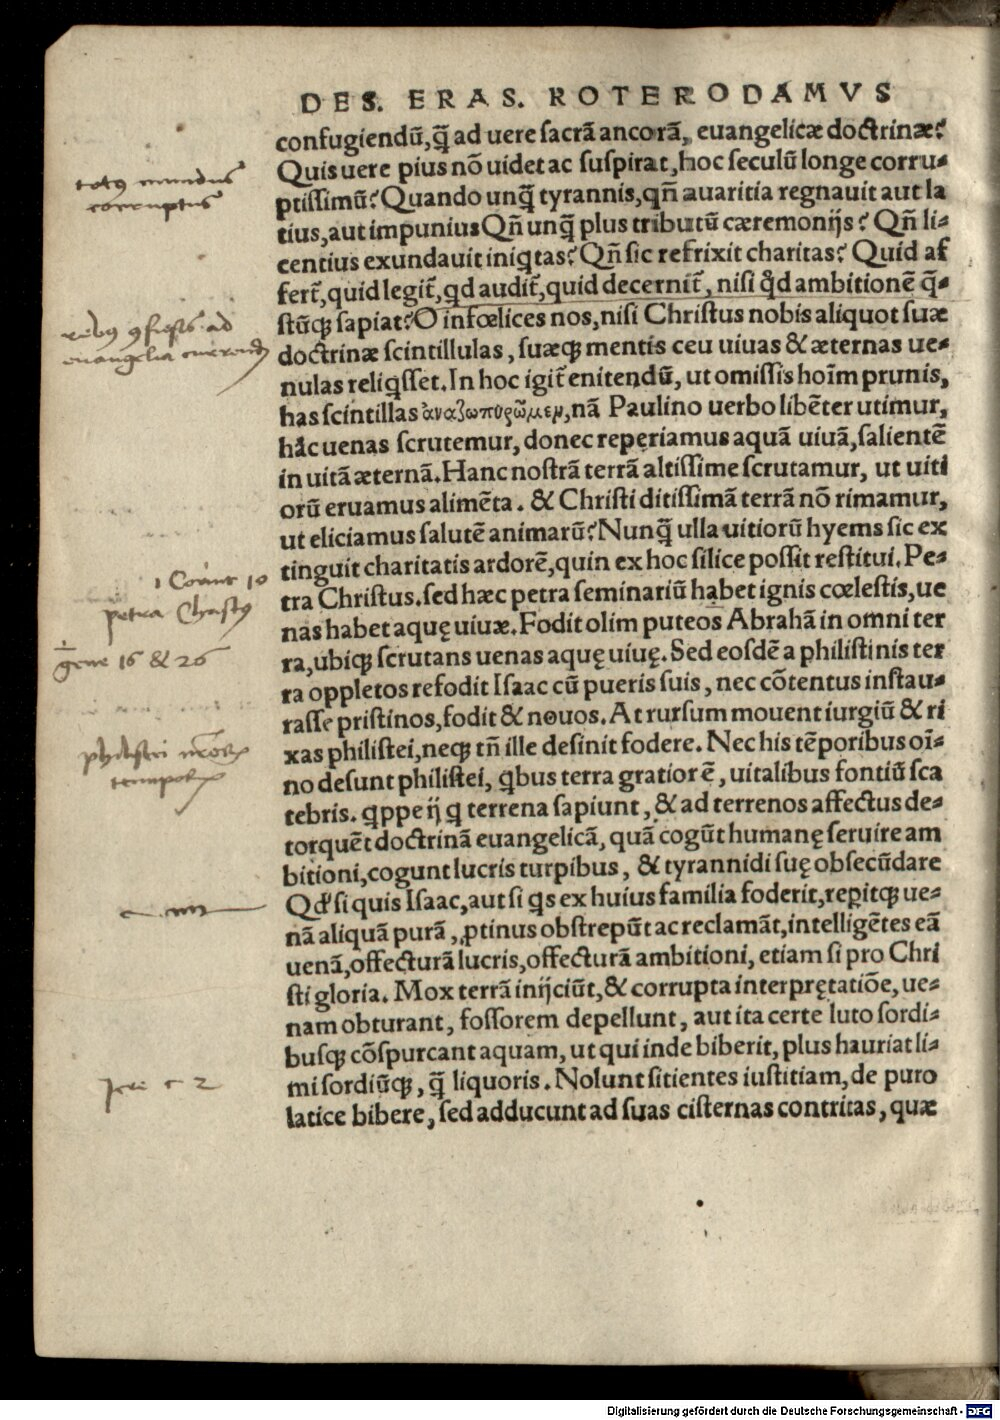 DES. ERAS. ROTERODAMVS
confugiendū,q̄ ad uere sacrā ancorā, euangelicæ doctrinæ?
Quis uere pius nō uidet ac suspirat, hoc seculū longe corru-
ptissimū? Quando unq̄ tyrannis, qñ auaritia regnauit aut la
tius, aut impunius Qñ unq̄ plus tributū cæremonijs? Qñ li-
centius exundauit iniqtas? Qñ sic refrixit charitas? Quid af
fert̄, quid legit̄, qd audit̄, quid decernit̄, nisi qd ambitionē q̄-
stūqꝫ sapiat? O infœlices nos, nisi Christus nobis aliquot suæ
doctrinæ scintillulas, suæqꝫ mentis ceu uiuas & æternas ue-
nulas reliqsset. In hoc igit̄ enitendū, ut omissis hoīm prunis,
has scintillas ἀναζωπυρῶμεν, nā Paulino uerbo libēter utimur,
hāc uenas scrutemur, donec reperiamus aquā uiuā, salientē
in uitā æternā. Hanc nostrā terrā altissime scrutamur, ut uiti
orū eruamus alimēta. & Christi ditissimā terrā nō rimamur,
ut eliciamus salutē animarū? Nunq̄ ulla uitiorū hyems sic ex
tinguit charitatis ardorē, quin ex hoc silice possit restitui. Pe-
tra Christus. sed hæc petra seminariū habet ignis cœlestis, ue
nas habet aquę uiuæ. Fodit olim puteos Abrahā in omni ter
ra, ubiqꝫ scrutans uenas aquę uiuę. Sed eosdē a philistinis ter
ra oppletos refodit Isaac cū pueris suis, nec cōtentus instau-
rasse pristinos, fodit & nouos. At rursum mouent iurgiū & ri
xas philistei, neqꝫ tñ ille desinit fodere. Nec his tēporibus oī-
no desunt philistei, qbus terra gratior ē, uitalibus fontiū sca
tebris. qppe ij q terrena sapiunt, & ad terrenos affectus de-
torquēt doctrinā euangelicā, quā cogūt humanę seruire am
bitioni, cogunt lucris turpibus, & tyrannidi suę obsecūdare
Qd si quis Isaac, aut si qs ex huius familia foderit, repitqꝫ ue-
nā aliquā purā, ꝓtinus obstrepūt ac reclamāt, intelligētes eā
uenā, offecturā lucris, offecturā ambitioni, etiam si pro Chri
sti gloria. Mox terrā inijciūt, & corrupta interprętatiōe, ue-
nam obturant, fossorem depellunt, aut ita certe luto sordi-
busqꝫ cōspurcant aquam, ut qui inde biberit, plus hauriat li-
mi sordiūqꝫ, q̄ liquoris. Nolunt sitientes iustitiam, de puro
latice bibere, sed adducunt ad suas cisternas contritas, quæ
totꝰ mundus
corruptus
euangelia
1 Corint 10
petra Christꝰ
gene 16 & 26
philistei
Digitalisierung gefördert durch die Deutsche Forschungsgemeinschaft - DFG